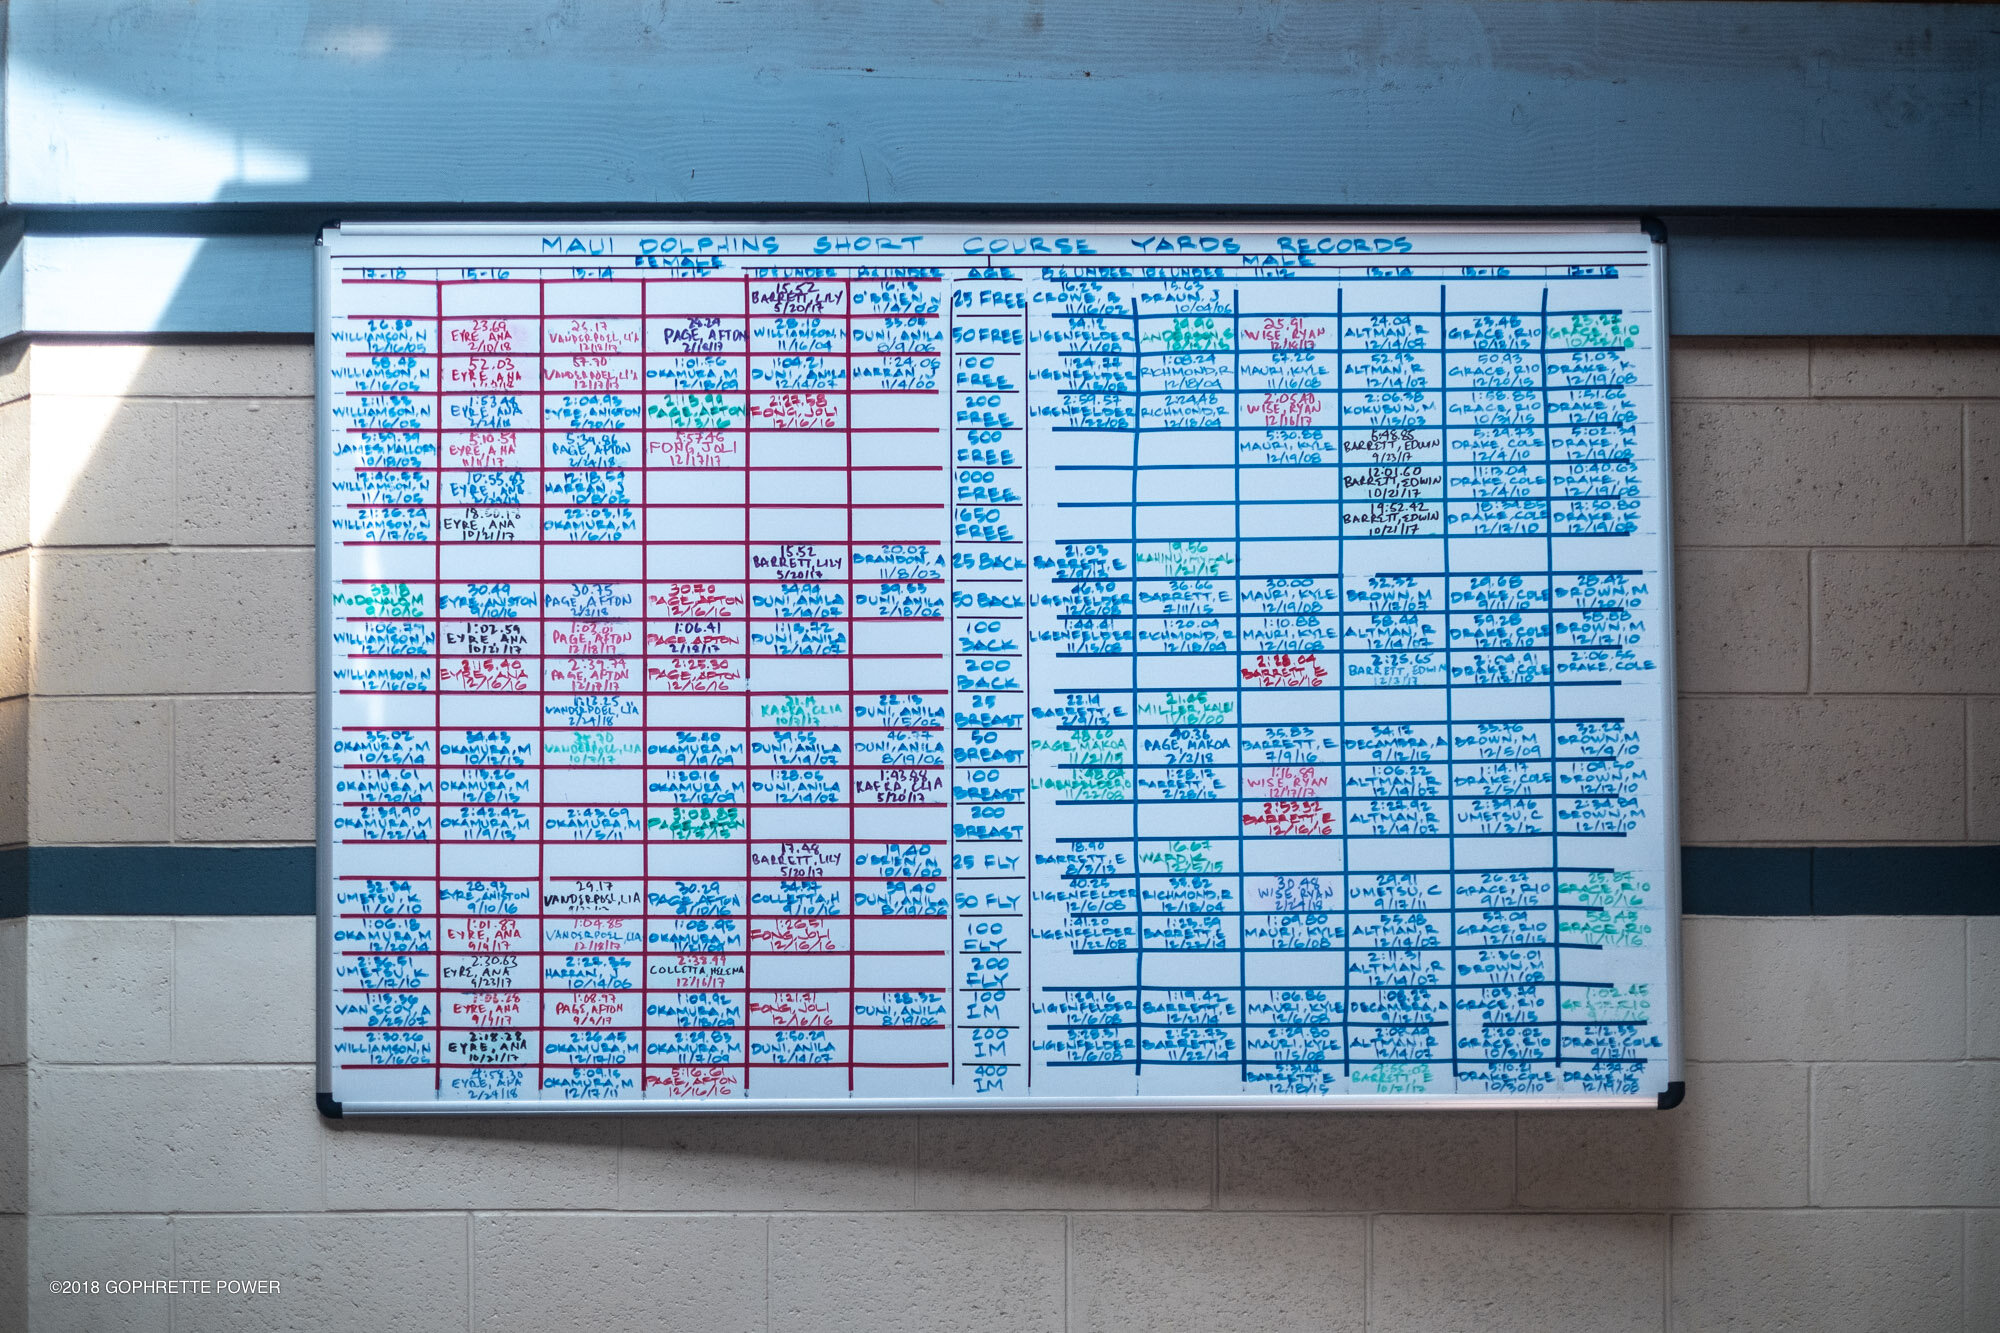 MAUI DOLPHINS SHORT COURSE YARDS RECORDS
FEMALE MALE
17-18 15-16 13-14 11-12 10 & UNDER 8 & UNDER AGE 8 & UNDER 10 & UNDER 11-12 13-14 15-16 17-18
15.52 16.13 16.23 15.63
BARRETT, LILY O'BRIEN, N 25 FREE CROWE, B BRAUN, J
5/20/17 11/4/00 11/16/02 10/04/06
26.80 23.69 25.17 28.10 25.91 24.04 23.48
WILLIAMSON, N EYRE, ANA VANDERPOEL, LIA PAGE, AFTON WILLIAMSON, N DUNI, ANILA 50 FREE LIGENFELDER WISE, RYAN ALTMAN, R GRACE, RIO GRACE, RIO
12/16/05 2/10/18 12/18/17 2/18/17 11/16/04 8/9/06 11/1/08 12/16/17 12/14/07 10/18/15
58.48 52.03 57.70 1:01.56 1:04.21 1:24.06 100 1:08.24 57.26 52.93 50.93 51.03
WILLIAMSON, N EYRE, ANA VANDERPOEL, LIA OKAMURA, M DUNI, ANILA HARRAN, J FREE LIGENFELDER RICHMOND, R MAURI, KYLE ALTMAN, R GRACE, RIO DRAKE, K
12/16/05 12/17/17 12/18/09 12/14/07 11/4/00 11/15/08 12/18/04 11/16/08 12/14/07 12/20/15 12/19/08
2:11.33 1:53.44 2:04.93 2:13.99 2:23.58 200 2:59.57 2:24.48 2:05.40 2:06.38 1:58.85 1:51.66
WILLIAMSON, N EYRE, ANA EYRE, ANISTON PAGE, AFTON FONG, JOLI FREE LIGENFELDER RICHMOND, R WISE, RYAN KOKUBUN, M GRACE, RIO DRAKE, K
12/16/05 2/24/18 5/20/16 12/3/16 12/16/16 11/22/08 12/18/04 12/16/17 11/15/03 10/31/15 12/19/08
5:59.39 5:10.54 5:39.86 5:57.46 500 5:30.88 5:48.85 5:29.73 5:02.34
JAMES, MALLORY EYRE, ANA PAGE, AFTON FONG, JOLI FREE MAURI, KYLE BARRETT, EDWIN DRAKE, COLE DRAKE, K
10/18/03 11/11/17 2/24/18 12/17/17 12/19/08 9/23/17 12/4/10 12/19/08
12:46.55 10:55.43 12:18.54 1000 12:01.60 11:13.04 10:40.63
WILLIAMSON, N EYRE, ANA HARRAN, J FREE BARRETT, EDWIN DRAKE, COLE DRAKE, K
11/12/05 2/24/18 10/8/05 10/21/17 12/4/10 12/19/08
21:26.24 22:03.15 1650 19:52.42 18:34.85 17:50.80
WILLIAMSON, N EYRE, ANA OKAMURA, M FREE BARRETT, EDWIN DRAKE, COLE DRAKE, K
9/17/05 10/21/17 11/6/10 10/21/17 12/17/10 12/19/08
15.52 20.02 21.03 19.56
BARRETT, LILY BRANDON, A 25 BACK BARRETT, E
5/20/17 11/8/03 2/9/13 11/21/15
33.18 30.49 30.75 30.70 34.94 39.53 46.30 36.66 30.00 32.32 29.68 28.42
McDONALD, M EYRE, ANISTON PAGE, AFTON PAGE, AFTON DUNI, ANILA DUNI, ANILA 50 BACK LIGENFELDER BARRETT, E MAURI, KYLE BROWN, M DRAKE, COLE BROWN, M
9/10/16 9/10/16 2/3/18 12/16/16 12/14/07 2/18/06 12/6/08 7/11/15 12/19/08 11/13/07 9/11/10 11/20/10
1:06.79 1:02.59 1:02.01 1:06.41 1:13.72 100 1:44.41 1:20.04 1:10.88 58.44 59.28 58.88
WILLIAMSON, N EYRE, ANA PAGE, AFTON PAGE, AFTON DUNI, ANILA BACK LIGENFELDER RICHMOND, R MAURI, KYLE ALTMAN, R DRAKE, COLE BROWN, M
12/16/05 10/21/17 12/18/17 2/18/17 12/14/07 11/15/08 12/18/04 12/19/08 12/14/07 12/13/10 12/17/10
2:15.40 2:39.74 2:25.30 200 2:28.04 2:25.65 2:06.55
WILLIAMSON, N EYRE, ANA PAGE, AFTON PAGE, AFTON BACK BARRETT, E BARRETT, EDWIN DRAKE, COLE DRAKE, COLE
12/16/05 12/16/16 12/17/17 12/16/16 12/16/16 12/3/17 12/18/10
1:12.25 22.13 25 22.14 21.45
VANDERPOEL, LIA KAFKA, CLIA DUNI, ANILA BREAST BARRETT, E MILLER, KALEI
2/24/18 10/7/17 11/5/05 2/9/13 11/18/00
35.02 34.43 36.40 39.55 46.77 50 48.60 40.36 35.83 34.12 33.76 32.24
OKAMURA, M OKAMURA, M VANDERPOEL, LIA OKAMURA, M DUNI, ANILA DUNI, ANILA BREAST PAGE, MAKOA PAGE, MAKOA BARRETT, E DECAMBRA, A BROWN, M BROWN, M
10/25/14 10/12/13 10/7/17 9/19/09 12/14/07 8/19/06 11/21/15 2/3/18 7/9/16 9/12/15 12/5/09 12/4/10
1:14.61 1:13.26 1:20.16 1:28.06 1:43.98 100 1:48.04 1:28.17 1:16.89 1:06.22 1:14.17 1:09.50
OKAMURA, M OKAMURA, M OKAMURA, M DUNI, ANILA KAFKA, CLIA BREAST LIGENFELDER BARRETT, E WISE, RYAN ALTMAN, R DRAKE, COLE BROWN, M
12/20/14 12/8/13 12/18/09 12/14/07 5/20/17 11/22/08 2/28/15 12/17/17 12/14/07 2/5/11 12/17/10
2:39.90 2:42.42 2:43.69 3:08.85 200 2:53.32 2:24.92 2:39.46 2:34.89
OKAMURA, M OKAMURA, M OKAMURA, M PAGE, AFTON BREAST BARRETT, E ALTMAN, R UMETSU, C BROWN, M
12/12/14 11/9/13 11/5/11 12/5/15 12/16/16 12/14/07 11/3/12 12/17/10
17.48 19.40 18.90 16.67
BARRETT, LILY O'BRIEN, N 25 FLY BARRETT, E WARD, K
5/20/17 10/8/00 8/3/13 12/5/15
32.34 28.93 29.17 30.29 34.57 39.40 40.25 33.82 30.48 29.91 26.27 25.87
UMETSU, K EYRE, ANISTON VANDERPOEL, LIA PAGE, AFTON COLLETTA, H DUNI, ANILA 50 FLY LIGENFELDER RICHMOND, R WISE, RYAN UMETSU, C GRACE, RIO GRACE, RIO
11/6/10 9/10/16 9/10/16 9/10/16 8/19/06 12/6/08 12/18/04 2/24/18 9/17/11 9/12/15 9/10/16
1:06.18 1:01.87 1:04.85 1:08.95 1:26.51 100 1:41.20 1:23.59 1:09.80 55.48 57.09 58.45
OKAMURA, M EYRE, ANA VANDERPOEL, LIA OKAMURA, M FONG, JOLI FLY LIGENFELDER BARRETT, E MAURI, KYLE ALTMAN, R GRACE, RIO GRACE, RIO
12/20/14 9/9/17 12/18/17 11/21/09 12/16/16 11/22/08 12/22/14 12/6/08 12/14/07 12/19/15 11/11/16
2:36.51 2:30.63 2:22.36 2:38.49 200 2:11.31 2:36.01
UMETSU, K EYRE, ANA HARRAN, J COLLETTA, HELENA FLY ALTMAN, R BROWN, M
12/17/10 9/23/17 10/14/06 12/16/17 12/14/07 11/1/08
1:15.36 1:03.28 1:08.97 1:09.92 1:21.71 1:28.32 100 1:29.16 1:19.42 1:06.86 1:02.45
VAN SCOY, A EYRE, ANA PAGE, AFTON OKAMURA, M FONG, JOLI DUNI, ANILA IM LIGENFELDER BARRETT, E MAURI, KYLE DECAMBRA, A GRACE, RIO GRACE, RIO
8/25/07 9/9/17 9/9/17 12/18/09 12/16/16 8/19/06 12/6/08 12/21/14 12/6/08 9/12/15 9/12/15
2:30.26 2:18.28 2:26.45 2:29.85 2:50.29 200 2:52.73 2:29.80 2:08.49 2:20.02 2:12.53
WILLIAMSON, N EYRE, ANA OKAMURA, M OKAMURA, M DUNI, ANILA IM LIGENFELDER BARRETT, E MAURI, KYLE ALTMAN, R GRACE, RIO DRAKE, COLE
12/16/05 10/21/17 12/17/10 11/7/09 12/14/07 12/6/08 11/22/14 11/5/08 12/14/07 10/31/15 9/17/11
4:58.30 5:09.16 5:16.61 400 5:31.44 4:55.02 5:10.21 4:34.04
EYRE, ANA OKAMURA, M PAGE, AFTON IM BARRETT, E BARRETT, E DRAKE, COLE DRAKE, K
2/24/18 12/17/11 12/16/16 12/18/15 10/7/17 10/30/10 12/19/08
©2018 GOPHRETTE POWER